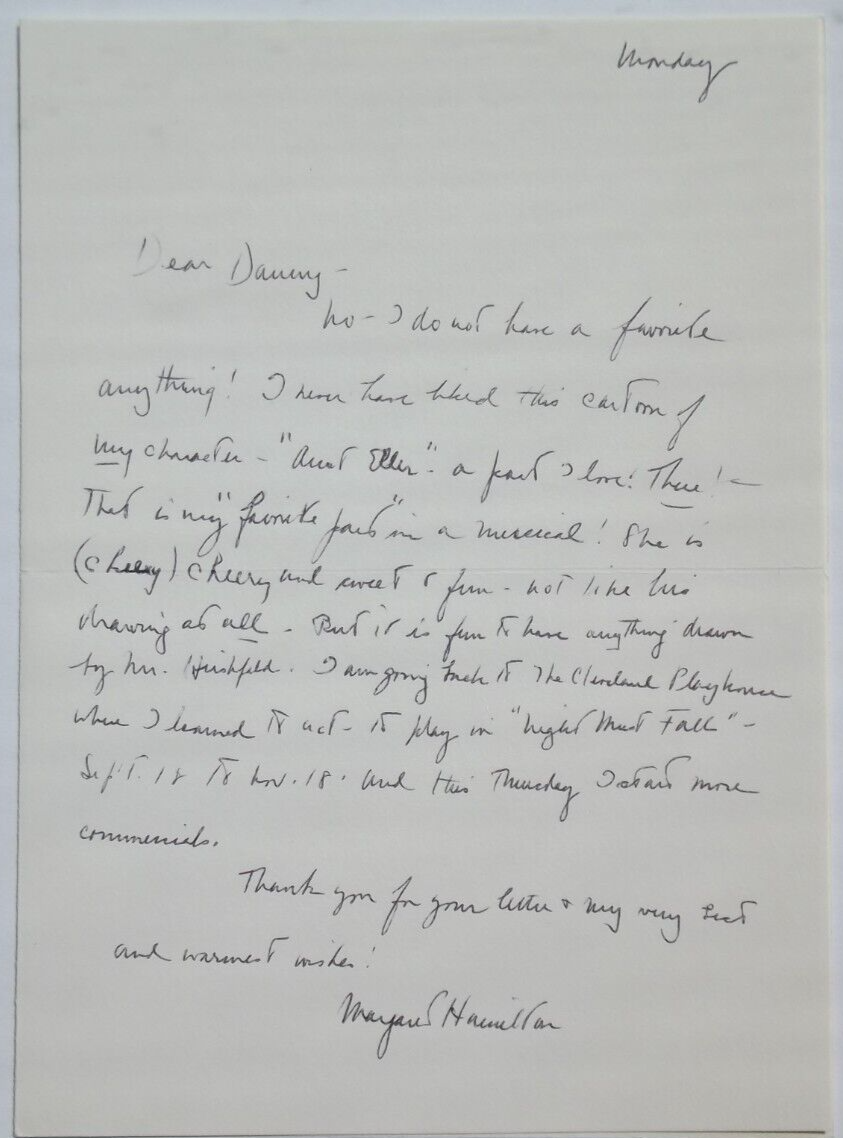 Monday
Dear Danny -
No - I do not have a favorite
anything! I never have liked this cartoon of
my character - "Aunt Eller" - a part I love! There! -
That is my "favorite part" in a musical! She is
(cheery) cheery and sweet & fun - not like his
drawing at all - But it is fun to have anything drawn
by Mr. Hirshfeld. I am going back to The Cleveland Playhouse
where I learned to act - to play in "Night Must Fall" -
Sept. 18 to Nov. 18. and this Thursday I start more
commercials.
Thank you for your letter & my very best
and warmest wishes!
Margaret Hamilton